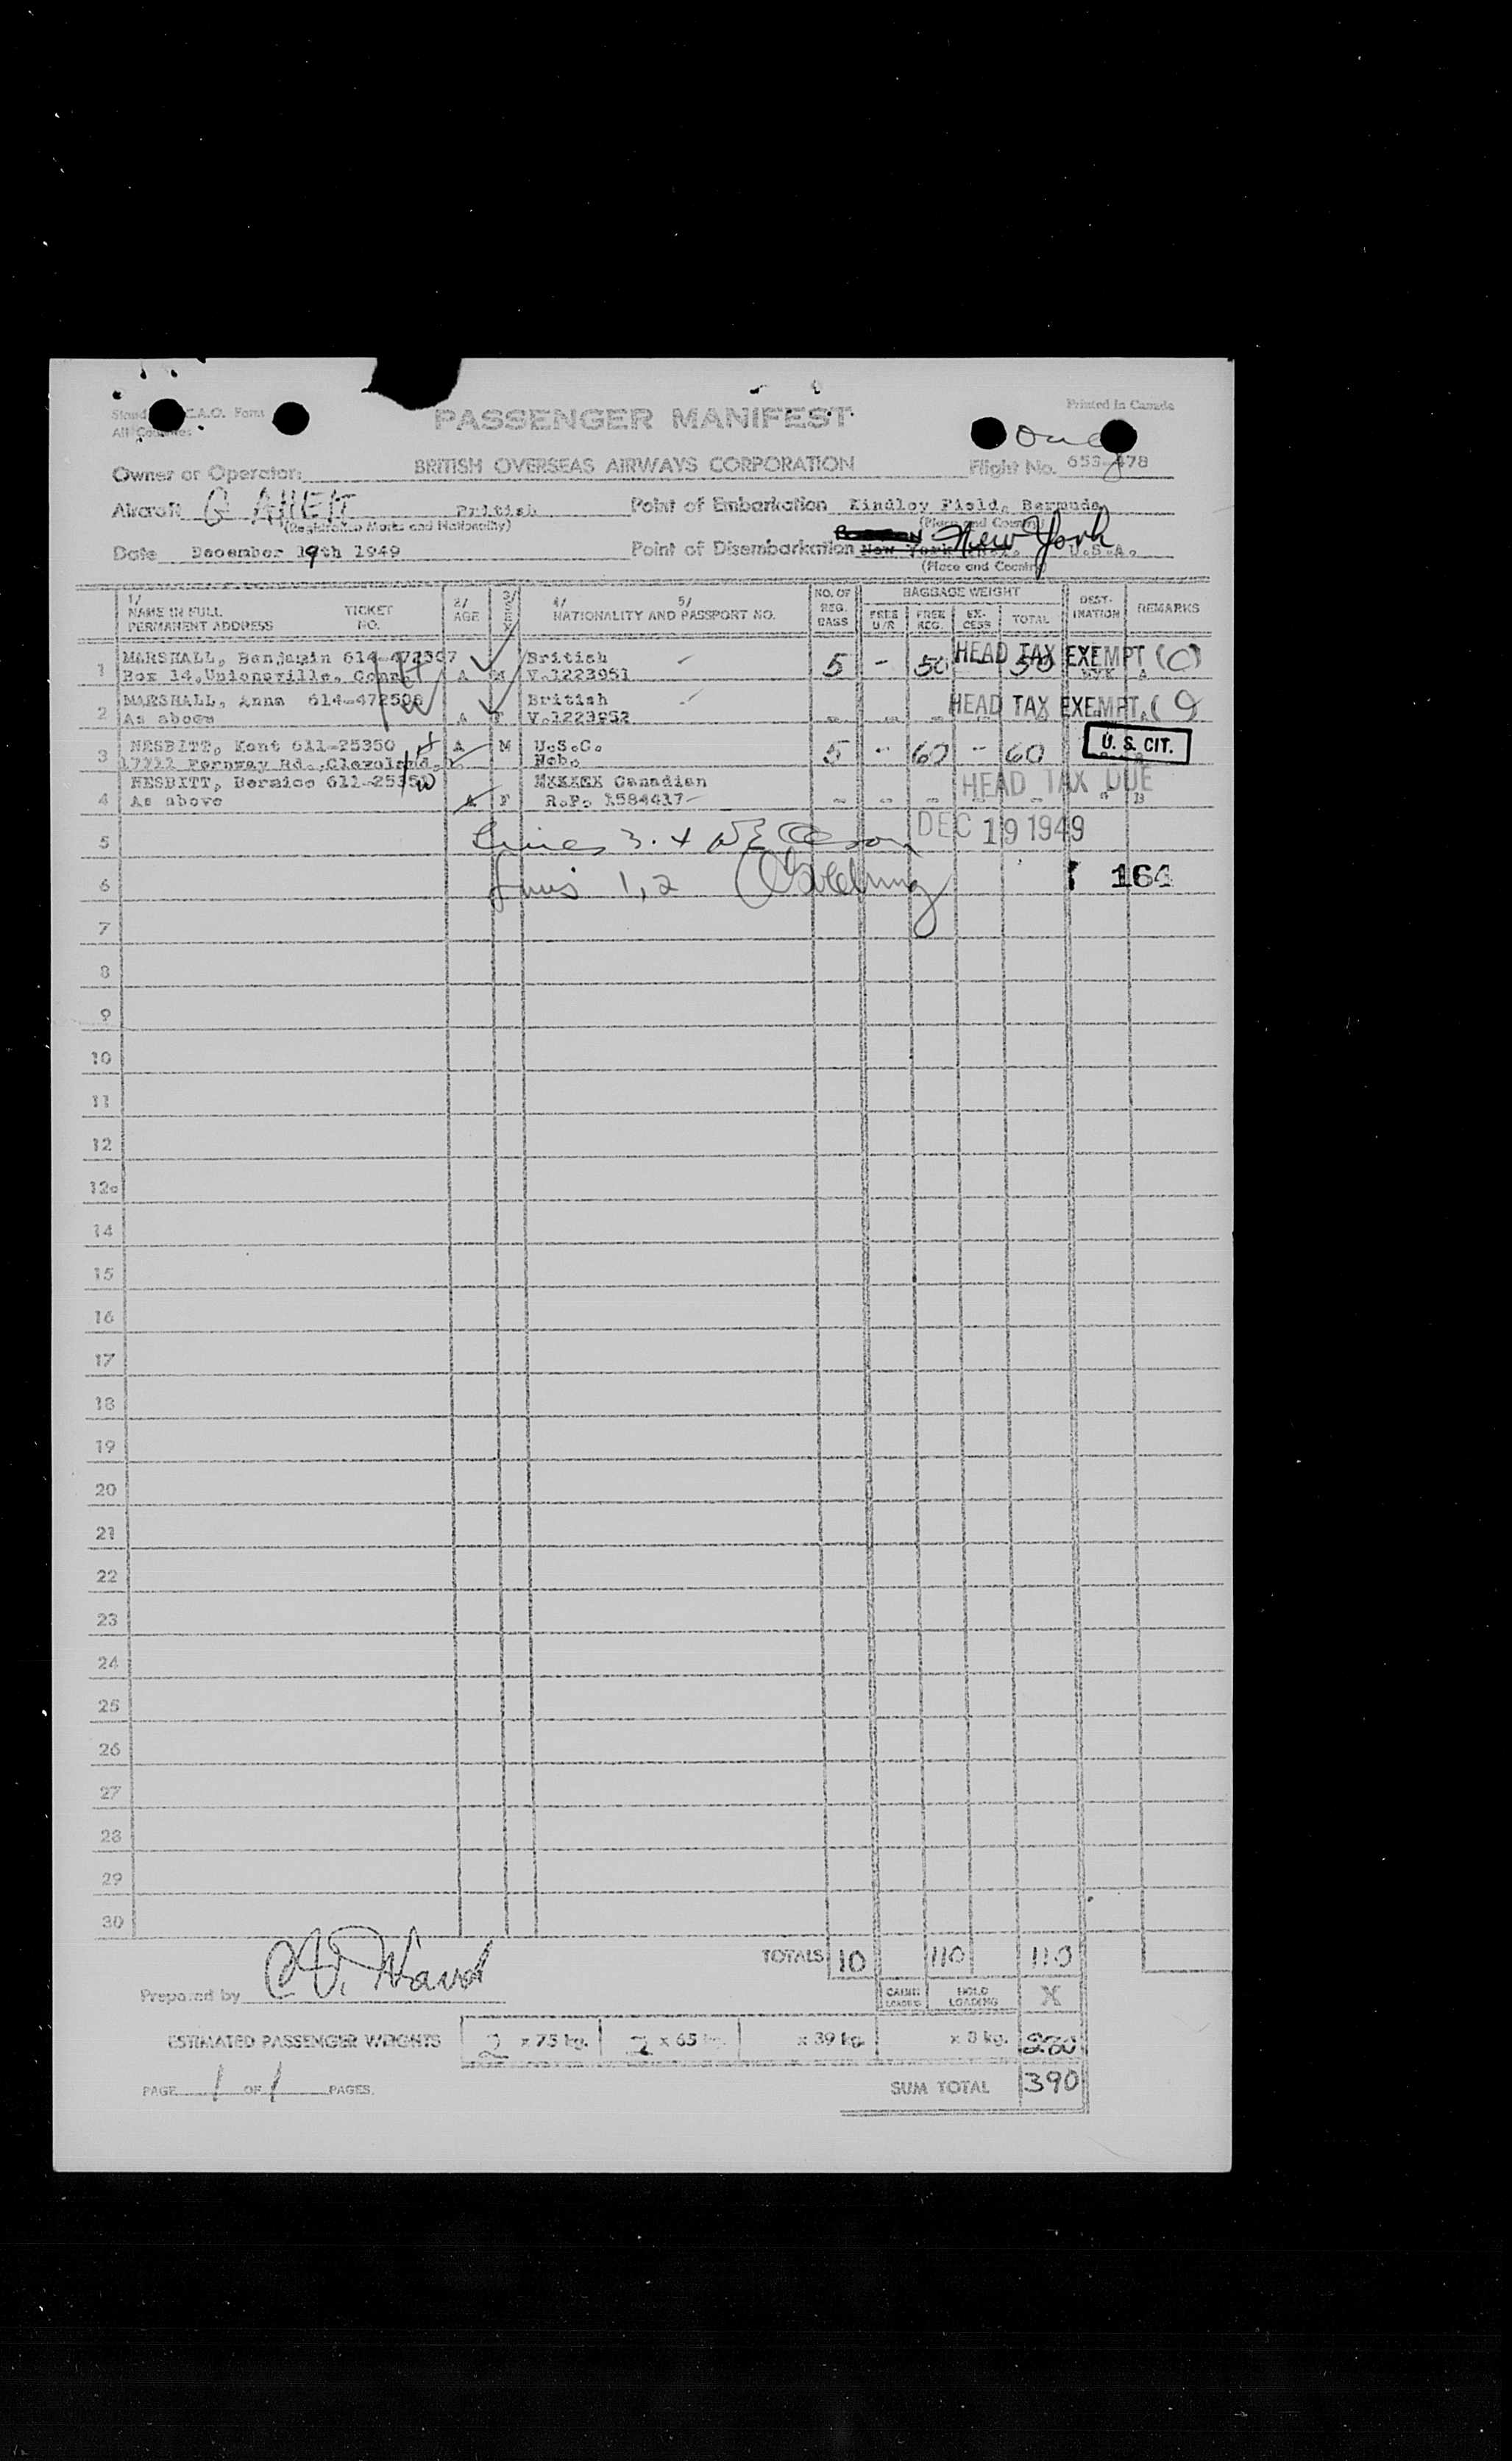 Printed in Canada
PASSENGER MANIFEST
Owner or Operator: BRITISH OVERSEAS AIRWAYS CORPORATION Flight No. 653-
Aircraft British Point of Embarkation Kindley Field, Bermuda
(Registration Marks and Nationality) (Place and Country)
Date December 19th 1949 Point of Disembarkation New York New York U.S.A.
(Place and Country)
1/ NAME IN FULL PERMANENT ADDRESS TICKET NO. 2/ AGE 3/ SEX 4/ 5/ NATIONALITY AND PASSPORT NO. NO. OF REG. BAGS BAGGAGE WEIGHT FREE U/R FREE REG. EXCESS TOTAL DESTINATION REMARKS
1 MARSHALL, Benjamin British 5 - 50 - 50 HEAD TAX EXEMPT (C)
Box 14, Unionville, Conn. A M V.1223951
2 MARSHALL, Anna British HEAD TAX EXEMPT
As above A F V.1223952
3 NESBITT, Kent 611-25350 A M U.S.C. 5 - 60 - 60 U.S. CIT.
Fernway Rd. Cleveland. Neb.
4 NESBITT, Bernice Canadian HEAD TAX DUE
As above A F R.P.
5 Lines 3. 4 DEC 19 1949
6 Lines 1, 2 164
7
8
9
10
11
12
12a
14
15
16
17
18
19
20
21
22
23
24
25
26
27
28
29
30
TOTALS 10 110 110
Prepared by CABIN LOADING HOLD LOADING X
ESTIMATED PASSENGER WEIGHTS 2 x 75 kg. 2 x 65 kg. x 39 kg. x 8 kg. 280
PAGE 1 OF 1 PAGES. SUM TOTAL 390